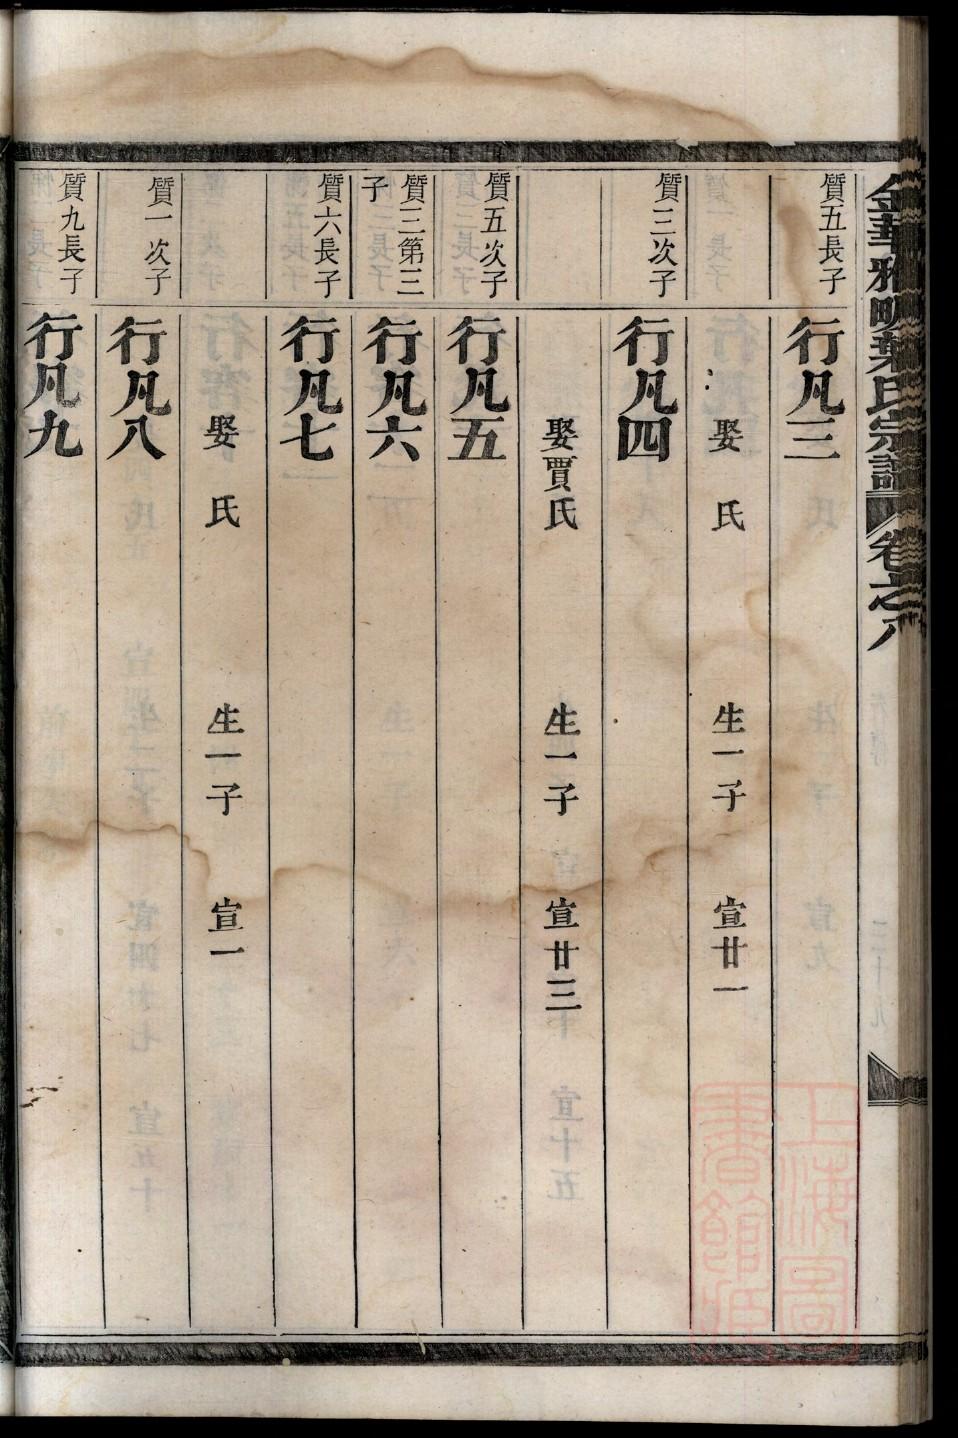 金華雅畈葉氏宗譜 卷之八
質五長子
行凡三
娶 氏 生一子 宣廿一
質三次子
行凡四
娶賈氏 生一子 宣廿三
質五次子
行凡五
質三第三
子
行凡六
質六長子
行凡七
娶 氏 生一子 宣一
質一次子
行凡八
質九長子
行凡九
上海圖
書館藏